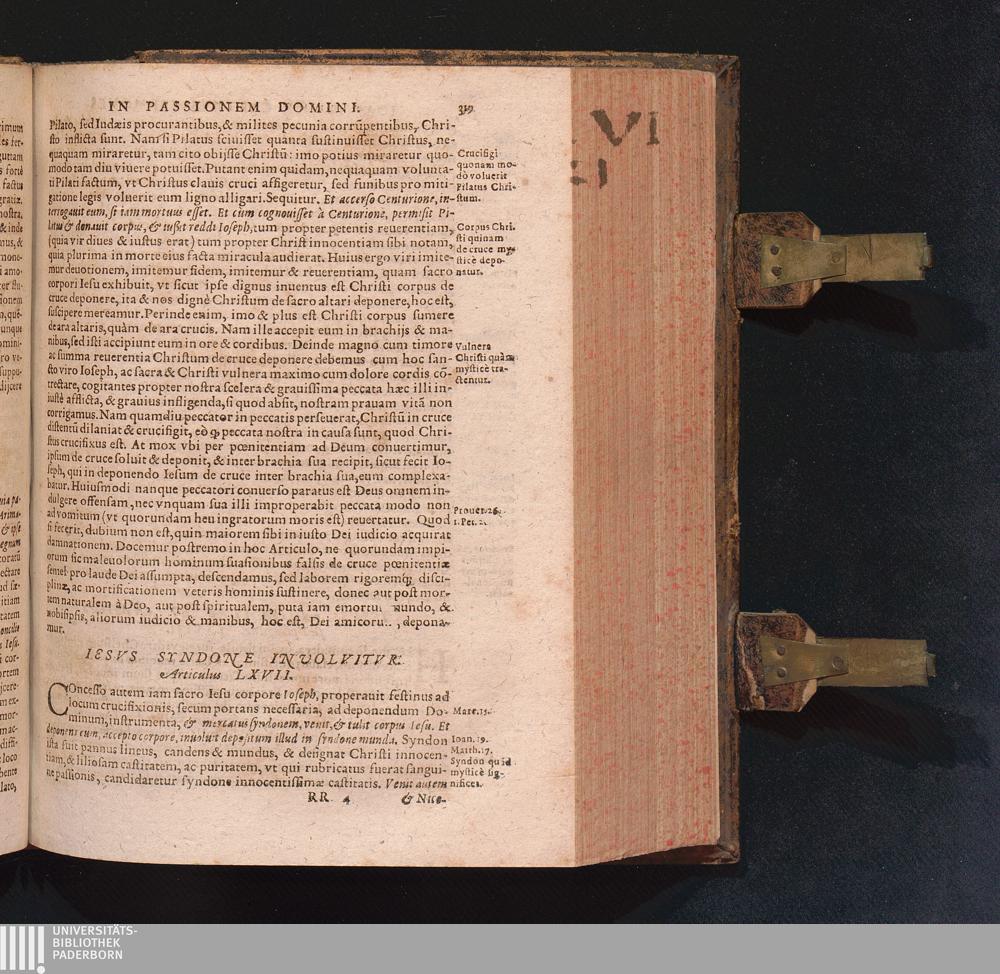 IN PASSIONEM DOMINI.
319
Pilato, sed Iudæis procurantibus, & milites pecunia corrũpentibus, Chri-
sto inflicta sunt. Nam si Pilatus sciuisset quanta sustinuisset Christus, ne-
quaquam miraretur, tam cito obijsse Christũ: imo potius miraretur quo-
modo tam diu viuere potuisset. Putant enim quidam, nequaquam volunta-
ti Pilati factum, vt Christus clauis cruci affigeretur, sed funibus pro miti-
gatione legis voluerit eum ligno alligari. Sequitur. Et accerso Centurione, in-
terrogauit eum, si iam mortuus esset. Et cùm cognouisset à Centurione, permisit Pi-
latus & donauit corpus, & iussit reddi Ioseph, tum propter petentis reuerentiam,
(quia vir diues & iustus erat) tum propter Christi innocentiam sibi notam,
quia plurima in morte eius facta miracula audierat. Huius ergo viri imite-
mur deuotionem, imitemur fidem, imitemur & reuerentiam, quam sacro
corpori Iesu exhibuit, vt sicut ipse dignus inuentus est Christi corpus de
cruce deponere, ita & nos dignè Christum de sacro altari deponere, hoc est,
suscipere mereamur. Perinde enim, imo & plus est Christi corpus sumere
de ara altaris, quàm de ara crucis. Nam ille accepit eum in brachijs & ma-
nibus, sed isti accipiunt eum in ore & cordibus. Deinde magno cum timore
ac summa reuerentia Christum de cruce deponere debemus cum hoc san-
cto viro Ioseph, ac sacra & Christi vulnera maximo cum dolore cordis cõ-
trectare, cogitantes propter nostra scelera & grauissima peccata hæc illi in-
iustè afflicta, & grauius infligenda, si quod absit, nostram prauam vitã non
corrigamus. Nam quamdiu peccator in peccatis perseuerat, Christũ in cruce
distentũ dilaniat & crucifigit, eò ꝙ peccata nostra in causa sunt, quod Chri-
stus crucifixus est. At mox vbi per pœnitentiam ad Deum conuertimur,
ipsum de cruce soluit & deponit, & inter brachia sua recipit, sicut fecit Io-
seph, qui in deponendo Iesum de cruce inter brachia sua, eum complexa-
batur. Huiusmodi nanque peccatori conuerso paratus est Deus omnem in-
dulgere offensam, nec vnquam sua illi improperabit peccata modo non
ad vomitum (vt quorundam heu ingratorum moris est) reuertatur. Quod
si fecerit, dubium non est, quin maiorem sibi in iusto Dei iudicio acquirat
damnationem. Docemur postremo in hoc Articulo, ne quorundam impi-
orum sic maleuolorum hominum suasionibus falsis de cruce pœnitentiæ
semel pro laude Dei assumpta, descendamus, sed laborem rigoremq́; disci-
plinæ, ac mortificationem veteris hominis sustinere, donec aut post mor-
tem naturalem à Deo, aut post spiritualem, puta iam emortui mundo, &
nobisipsis, aliorum iudicio & manibus, hoc est, Dei amicoru.., depona-
mur.
IESVS SYNDONE INVOLVITVR.
Articulus LXVII.
COncesso autem iam sacro Iesu corpore Ioseph, properauit festinus ad
locum crucifixionis, secum portans necessaria, ad deponendum Do-
minum, instrumenta, & mercatus syndonem, venit, & tulit corpus Iesu. Et
deponens eum, accepto corpore, inuoluit depositum illud in syndone munda. Syndon
ista fuit pannus lineus, candens & mundus, & designat Christi innocen-
tiam, & liliosam castitatem, ac puritatem, vt qui rubricatus fuerat sangui-
ne passionis, candidaretur syndone innocentissimæ castitatis. Venit autem
RR 4
& Nico-
Crucifigi
quonam mo-
dò voluerit
Pilatus Chri-
stum.
Corpus Chri-
sti quinam
de cruce my-
sticè depo-
natur.
Vulnera
Christi quàm
mysticè tra-
ctentur.
Prouer. 26.
1. Pet. 2.
Marc. 15.
Ioan. 19.
Matth. 27.
Syndon quid
mysticè sig-
nificet.
VI
UNIVERSITÄTS-
BIBLIOTHEK
PADERBORN